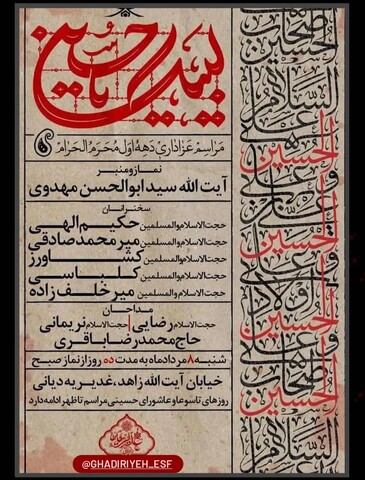 لبیک یا حسین
مراسم عزاداری دهه اول محرم الحرام
نماز و منبر
آیت الله سید ابوالحسن مهدوی
سخنرانان
حجت الاسلام والمسلمین حکیم الهی
حجت الاسلام والمسلمین میر محمد صادقی
حجت الاسلام والمسلمین کشاورز
حجت الاسلام والمسلمین کلباسی
حجت الاسلام والمسلمین میر خلف زاده
مداحان
حجت الاسلام رضایی | حجت الاسلام نریمانی
حاج محمدرضا باقری
شنبه ۸ مرداد ماه به مدت ده روز از نماز صبح
خیابان آیت الله زاهد، غدیریه دیانی
روزهای تاسوعا و عاشورای حسینی مراسم تا ظهر ادامه دارد
@GHADIRIYEH_ESF
اصحاب
الحسین
السلام
علی
الحسین
و علی
علی بن
الحسین
و علی
اولاد
الحسین
و علی
اصحاب
الحسین
السلام